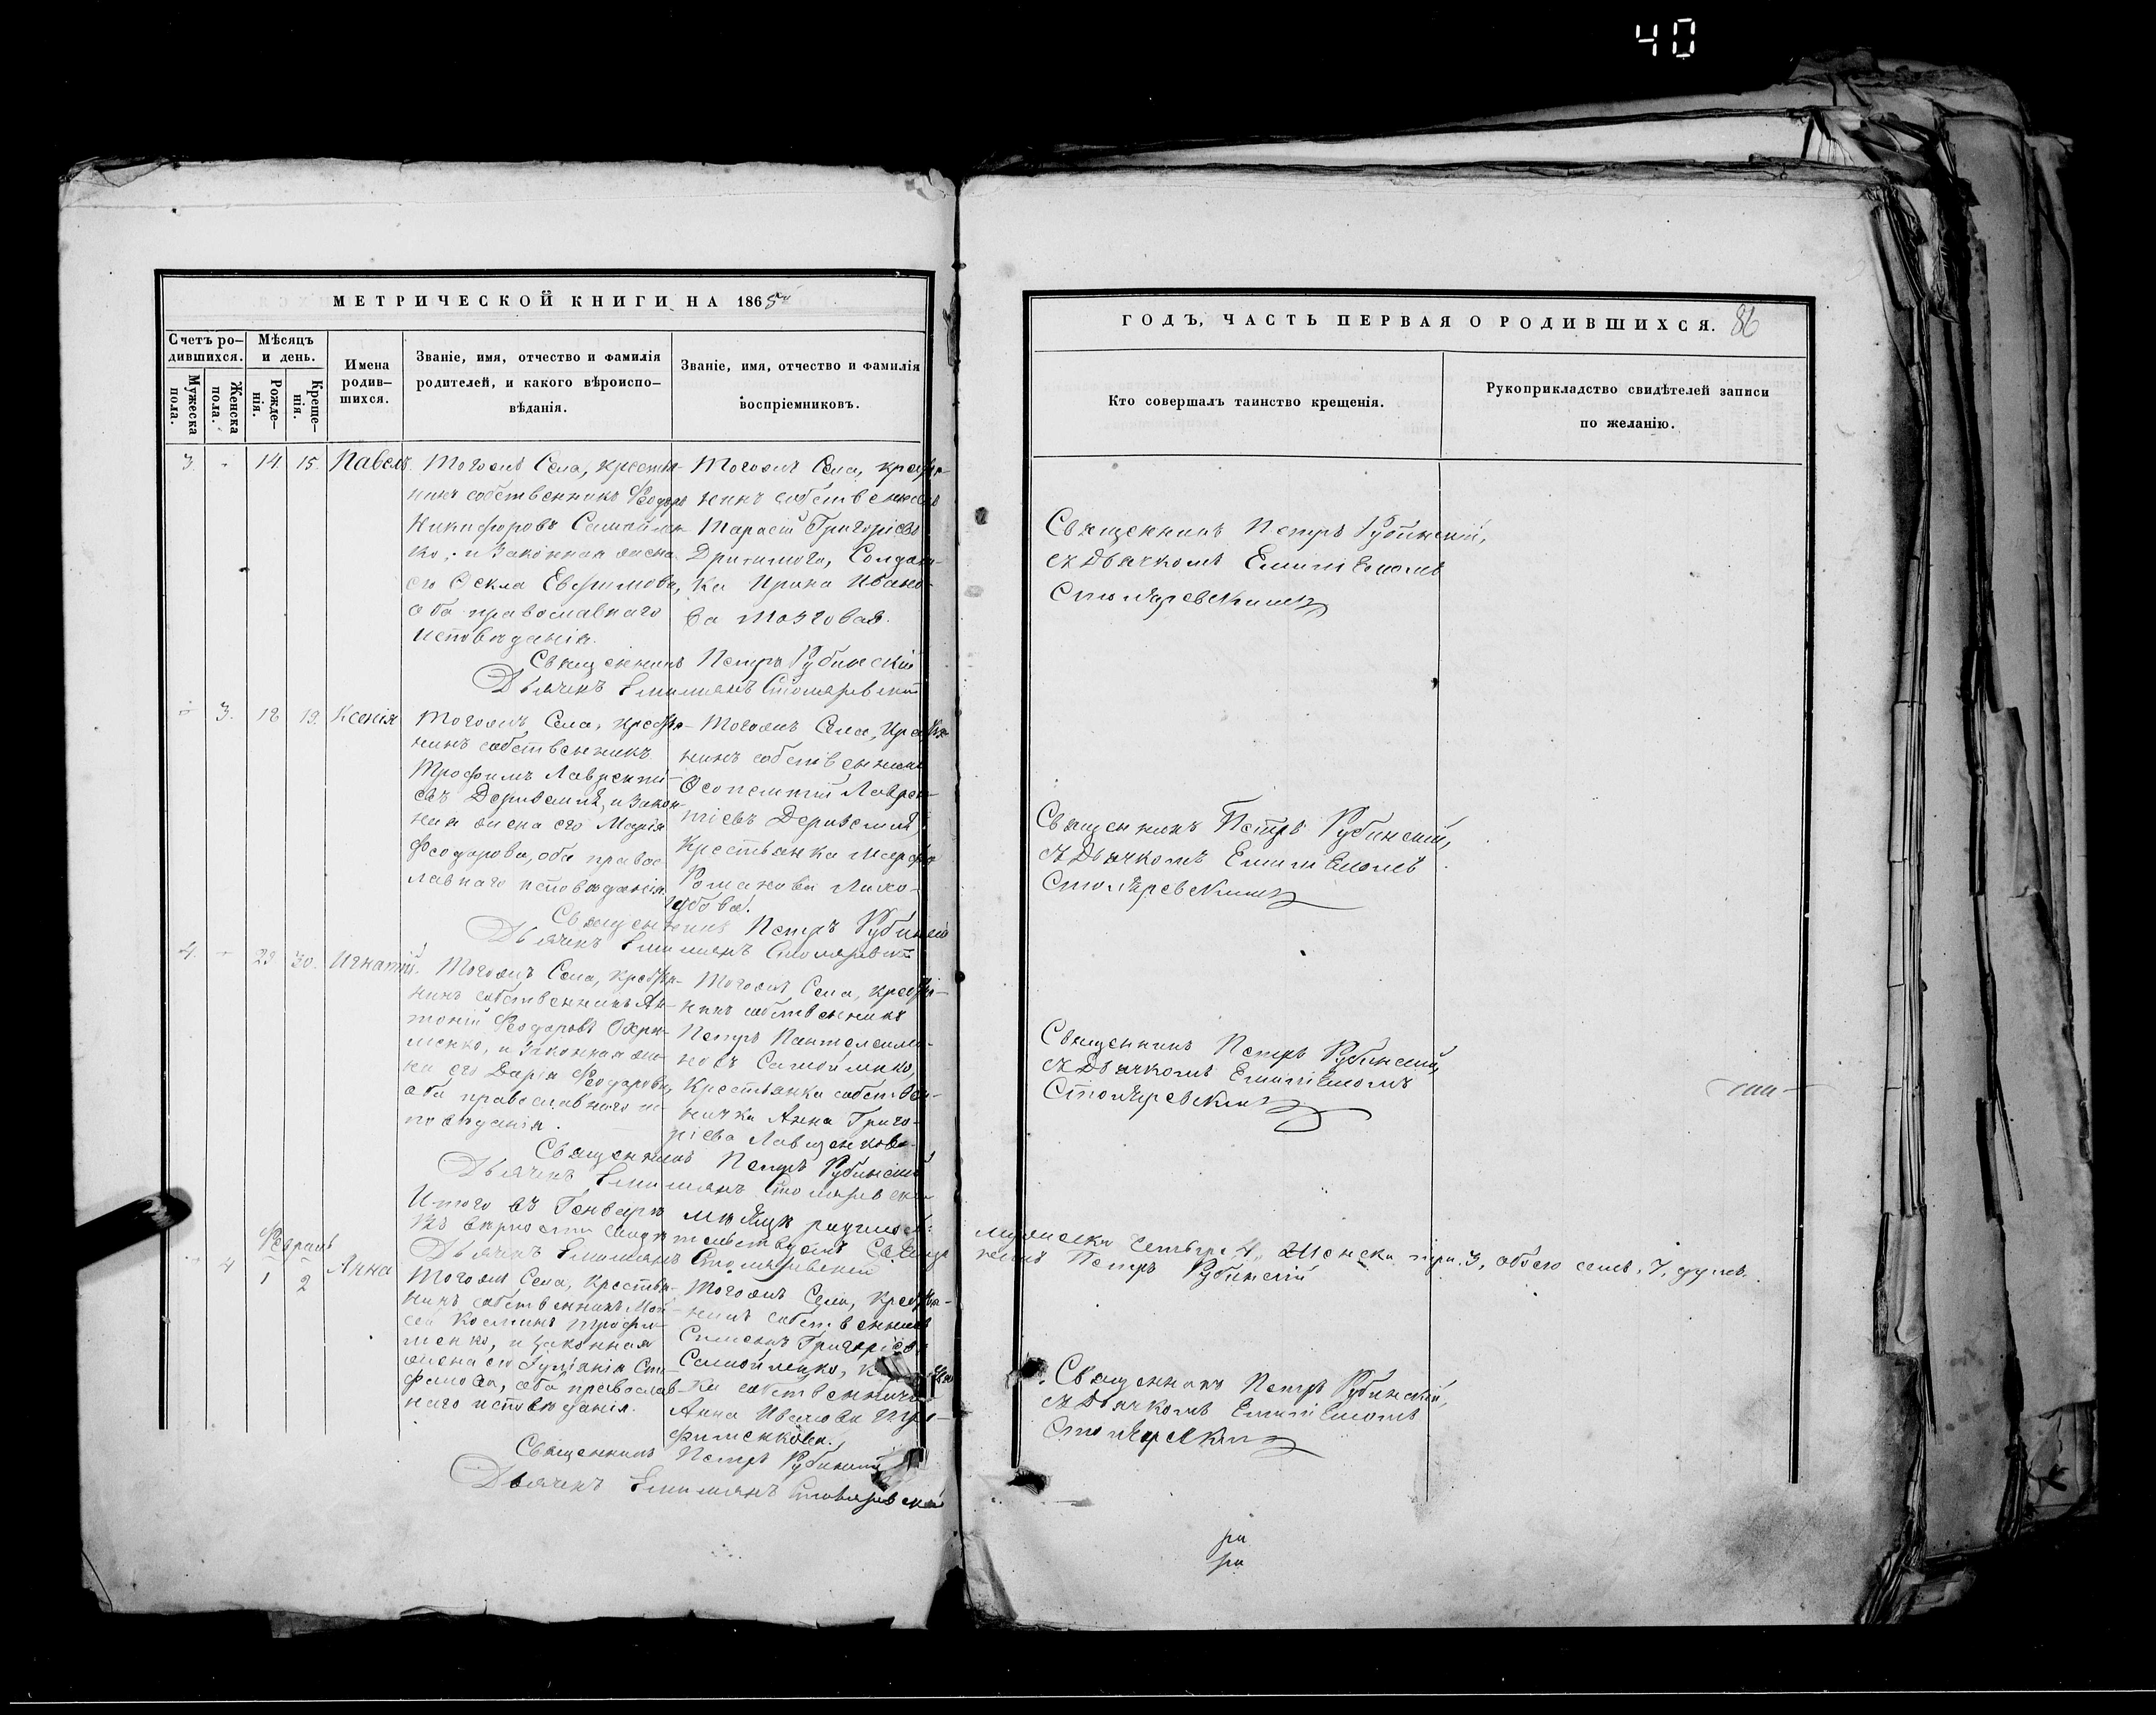 40
МЕТРИЧЕСКОЙ КНИГИ НА 1865й
Счетъ ро-
дившихся.
Мѣсяцъ
и день.
Мужеска
пола.
Женска
пола.
Рожде-
нія.
Креще-
нія.
Имена
родив-
шихся.
Званіе, имя, отчество и фамилія
родителей, и какого вѣроиспо-
вѣданія.
Званіе, имя, отчество и фамилія
воспріемниковъ.
3. - 14. 15. Павелъ.
Тогожъ Села, крестья-
нинъ собственникъ Ѳеодоръ
Никифоровъ Самойлен-
ко, и законная жена
его Ѳекла Евфимова,
оба православнаго
исповѣданія.
Тогожъ Села, крестья-
нинъ собственникъ
Тарасій Григорієвъ
Солдат-
ка Ирина Ивано-
ва Мозговая.
Священникъ Петръ Рубинскій
Дьячекъ Емилианъ Столяревскій
- 3. 18 19. Ксенія
Тогожъ Села, крестья-
нинъ собственникъ
Трофимъ Лавренті-
евъ и закон-
ная жена его Марія
Феодорова, оба правос-
лавнаго исповѣданія
Тогожъ Села, крестья-
нинъ собственникъ
Ѳеопемптій Лаврен-
тіевъ
Крестьянка Марфа
Романова
Священникъ Петръ Рубинскій
Дьячекъ Емилианъ Столяревскій
4. - 29 30. Игнатій.
Тогожъ Села, крестья-
нинъ собственникъ Ан-
тоній Ѳеодоровъ Охри-
менко, и законная же-
на его Дарія Ѳеодорова,
оба православнаго ис-
повѣданія.
Тогожъ Села, крестья-
нинъ собственникъ
Петръ Пантелеимо-
новъ Самойленко,
Крестьянка собствен-
ничка Анна Григо-
рієва
Священникъ Петръ Рубинскій
Дьячекъ Емилианъ Столяревскій
Итого въ Генварѣ мѣсяцѣ родилось:
Дьячекъ Емилианъ Столяревскій
Февраль
- 4 1 2 Анна
Тогожъ Села, крестья-
нинъ собственникъ Мой-
сей Косминъ Трофи-
менко, и законная
жена его Іуліанія Сте-
фанова, оба православ-
наго исповѣданія.
Тогожъ Села, крестья-
нинъ собственникъ
Симеонъ Григорієвъ
Самойленко,
ка собственничка
Анна Иванова Тро-
фименкова.
Священникъ Петръ Рубинскій
Дьячекъ Емилианъ Столяревскій
ГОДЪ, ЧАСТЬ ПЕРВАЯ О РОДИВШИХСЯ. 86
Кто совершалъ таинство крещенія.
Рукоприкладство свидѣтелей записи
по желанію.
Священникъ Петръ Рубинскій,
съ Дьячкомъ Емиліаномъ
Столяревскимъ
Священникъ Петръ Рубинскій,
съ Дьячкомъ Емиліаномъ
Столяревскимъ
Священникъ Петръ Рубинскій,
съ Дьячкомъ Емиліаномъ
Столяревскимъ
мужеска четыре 4, Женска три 3, обоего семь, 7, душъ.
Петръ Рубинскій
Священникъ Петръ Рубинскій,
съ Дьячкомъ Емиліаномъ
Столяревскимъ